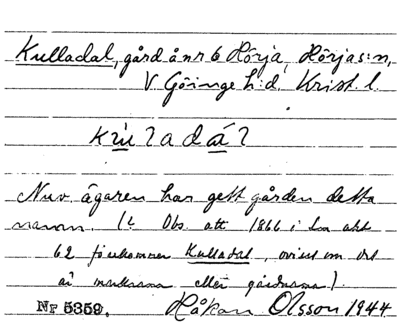 Kulladal, gård å nr 6 Hörja, Hörja s:n,
V. Göinge h:d. Krist. l.
Nuv. ägaren har gett gården detta
namn. (? Obs. att 1866 i LM akt
62 förekommer Kulladal, ovisst om det
är markerna eller gårdarna).
Nr 5359. Håkan Olsson 1944